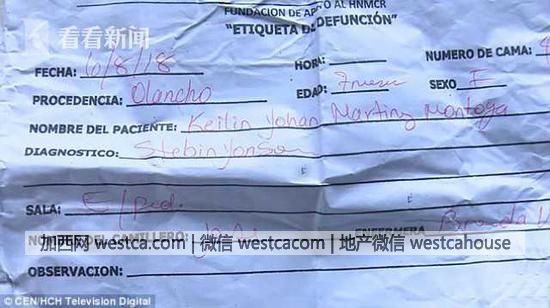 看看新闻
FUNDACION DE APOYO AL HNMCR
"ETIQUETA DE DEFUNCIÓN"
FECHA: 6/8/18 HORA: NUMERO DE CAMA:
PROCEDENCIA: Olancho EDAD: 7 SEXO: F
NOMBRE DEL PACIENTE: Keilin Johan Martinz Montoya
DIAGNOSTICO: Stebin Jonson
SALA: E/Ped.
加西网 westca.com | 微信 westcacom | 地产微信 westcahouse
NOMBRE DEL CAMILLERO: ENFERMERA
OBSERVACION:
© CEN/HCH Television Digital